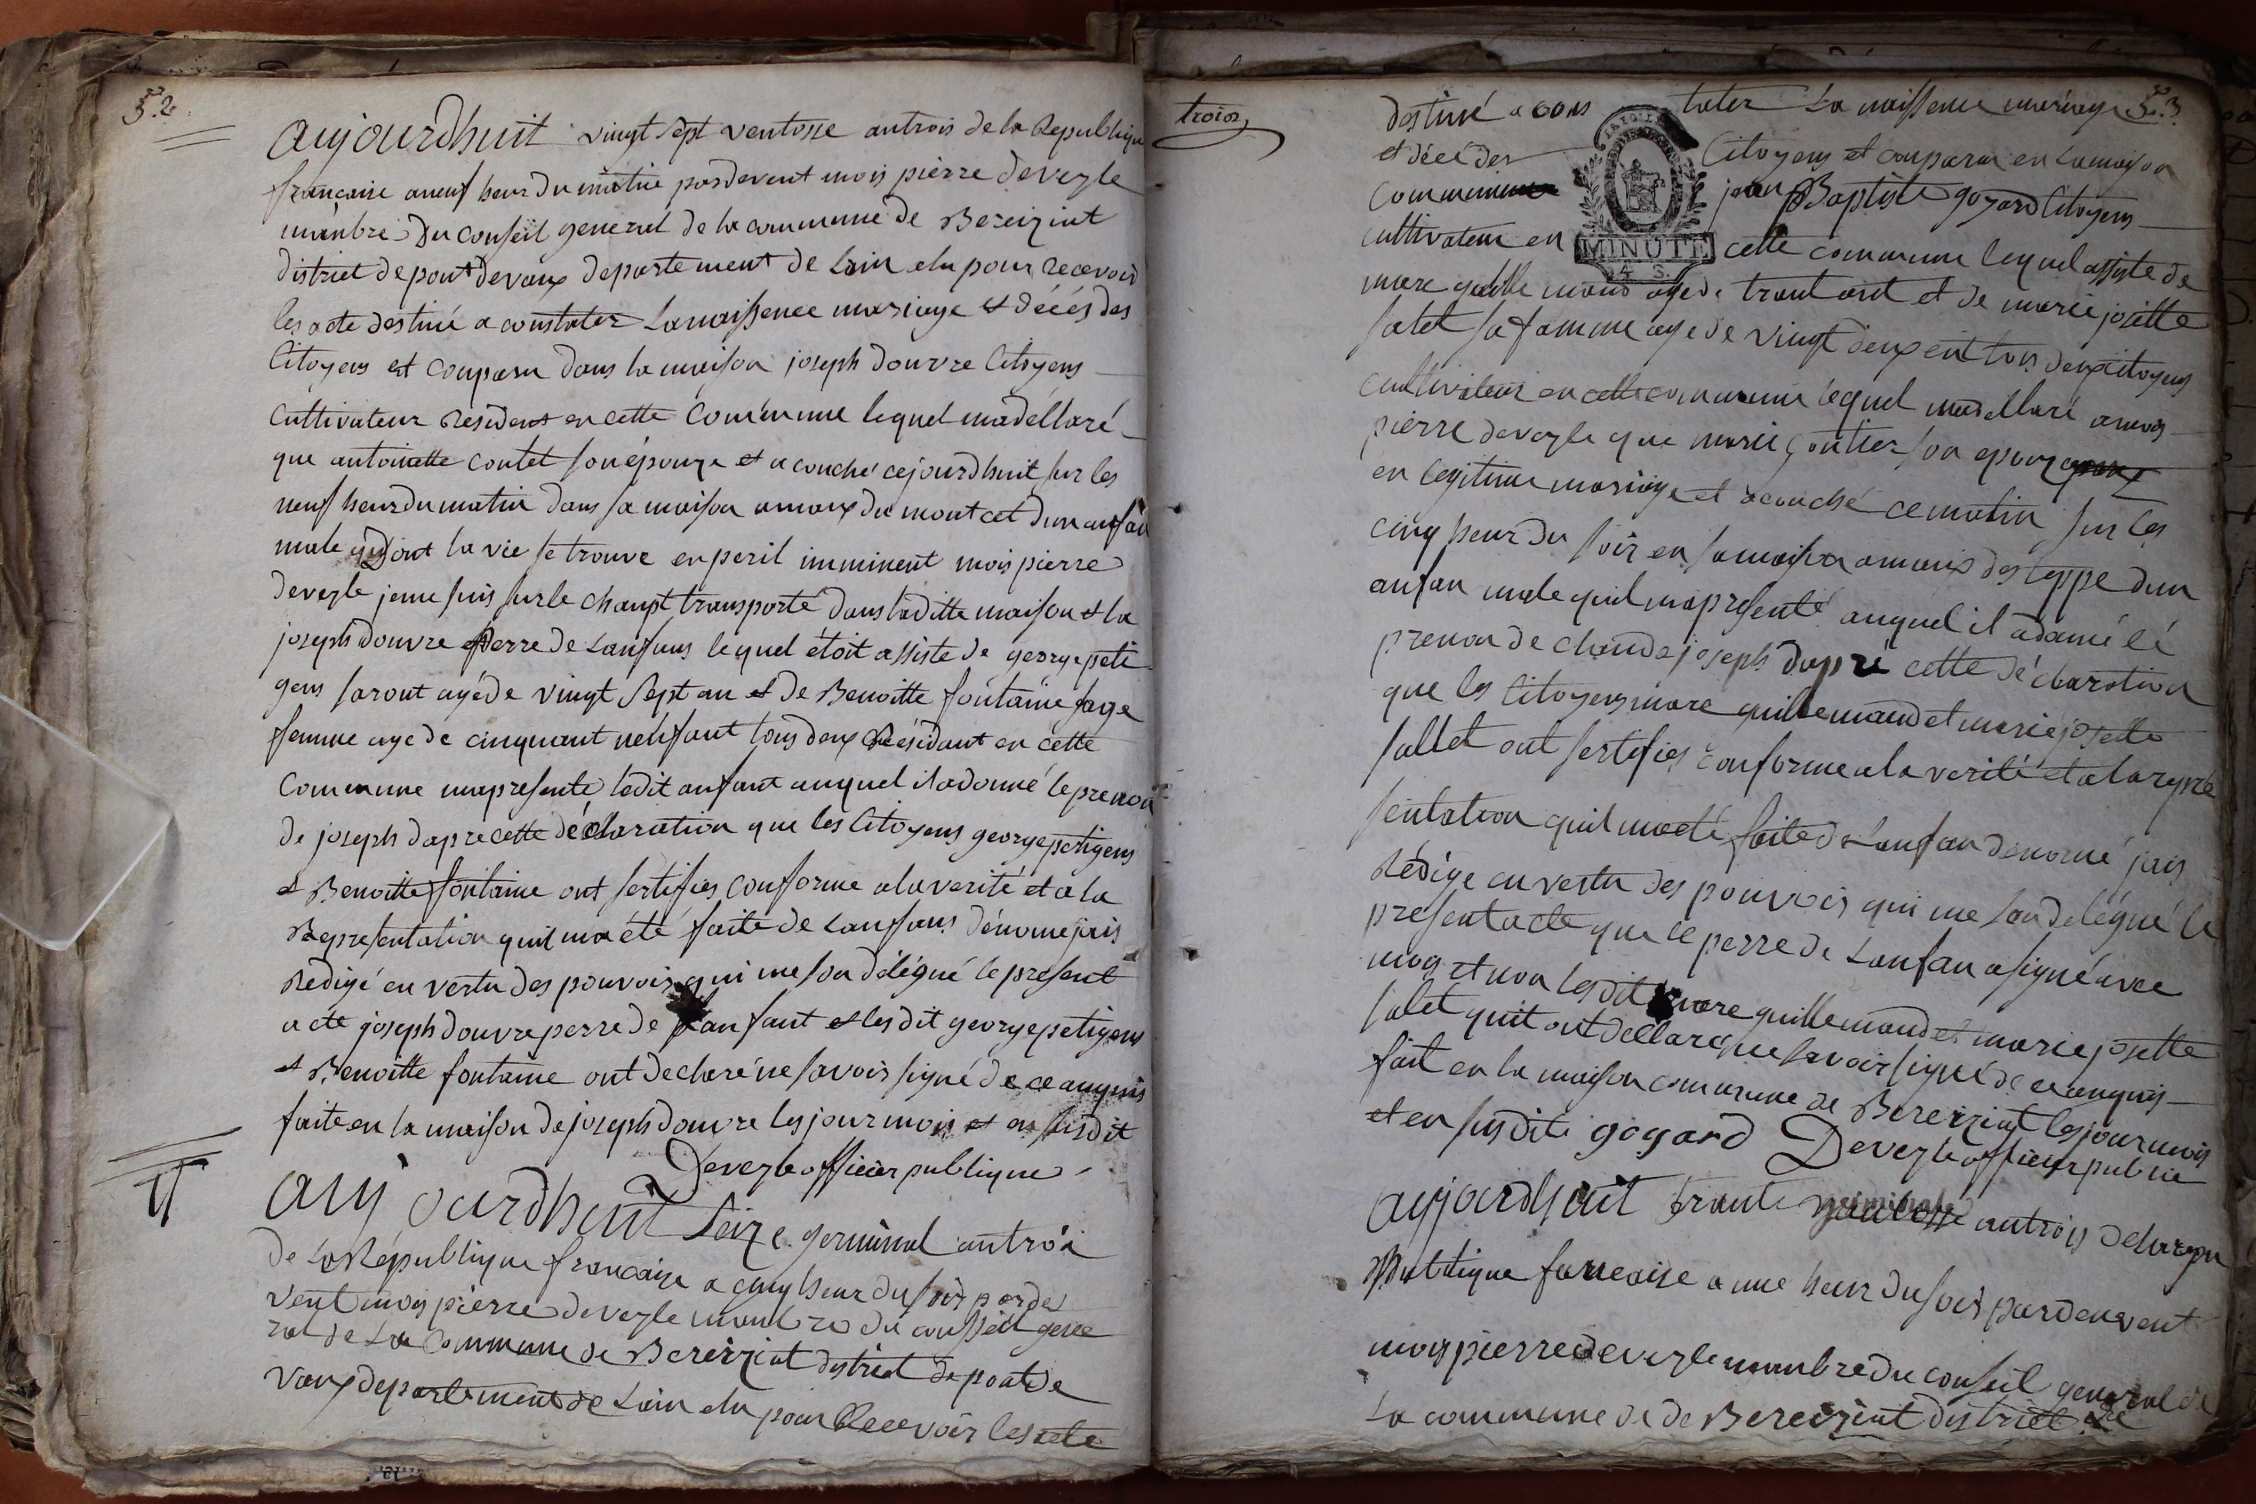 52
Aujourdhuit vingt sept ventosse antrois de la Republique
francaise aneuf heur du matin pardevent mois pierre deveyle
manbre Du conseil general de la commune de Bereiziat
district de pont devaux departement de Lain elu pour recevoir
les acte destiné a constater Lanaissence mariage et décés des
Citoyens est conparu dans la maison joseph douvre Citoyens
cultivateur résident en cette commune lequel madéllaré
que antoinette contet son épouze et acouché cejourdhuit sur les
neuf heur du matin dans sa maison amaux du montcet dun anfan
male dont la vie se trouve en peril imminent mois pierre
deveyle jeme suis surle chanpt transporté dans laditte maison et la
joseph douvre perre de Lanfans lequel étoit assiste de george peti
gens saront agé de vingt sept an et de Benoitte fontaine sage
femme age de cinquant neufant tous deux Résidant en cette
Commune maprésenté ledit anfant auquel il adonné le prenon
de joseph dapre cette déclaration que les Citoyens george petigens
et Benoitte fontaine ont sertifies conforme alaverité et a la
Representation quil ma été faite de Lanfans dénomé jais
Redigé en vertu des pouvois qui me son délégué le present
acte joseph douvre perre de Lanfant et lesdit george petigens
et Benoitte fontaine ont declaré ne savoir signé de ce anquis
faite en la maison de joseph douvre les jour mois et an susdit
Deveyle officier publique
Aujourdhuit Seize germinal antrois
de La République francaise a cinq heur du soir parde
vent mois pierre deveyle manbre du conseil gene
ral de La Commune de Bereiziat district de pont de
vaux departement de Lain elu pour Recevoir les acte
trois
53
destiné a cons tater La naissence mariage
et décé des Citoyens est conparu en lamaison
Commune jean Baptiste goyard Citoyens
cultivateur en cette commune lequel assiste de
MINUTE
4 S.
marc quille maud age de trant ant et de marie josette
salet sa famme age de vingt deux ent tous deux citoyens
cultivateur en cette commune lequel madéllaré amois
pierre deveyle que marie gontier son epouze
en legitime mariage et acouché cematin sur les
cinq heur du soir en sa maison amaux des teppe dun
anfan male quil maprésenté auquel il adonné lé
prenon de claude joseph daprè cette déclaration
que les Citoyens marc quillemaud et marie josette
sallet ont sertifies conforme ala verité et ala repre
sentation quil maeté faite de Lanfan denomé jais
Rédige en vertu des pouvois qui me son delégué le
present acte que le perre de Lanfan a signé avec
moy et non lesdit marc quillemaud et marie josette
salet quit ont dellaré ne savoir signé de ce anquis
fait en la maison commune de Bereiziat les jour mois
et en susdite goyard Deveyle officier public
aujourdhuit trante germinale antrois de la repu
publique francaise a une heur du soir pardevent
mois pierre deveyle manbre du conseil general de
La commune de de Bereiziat district de